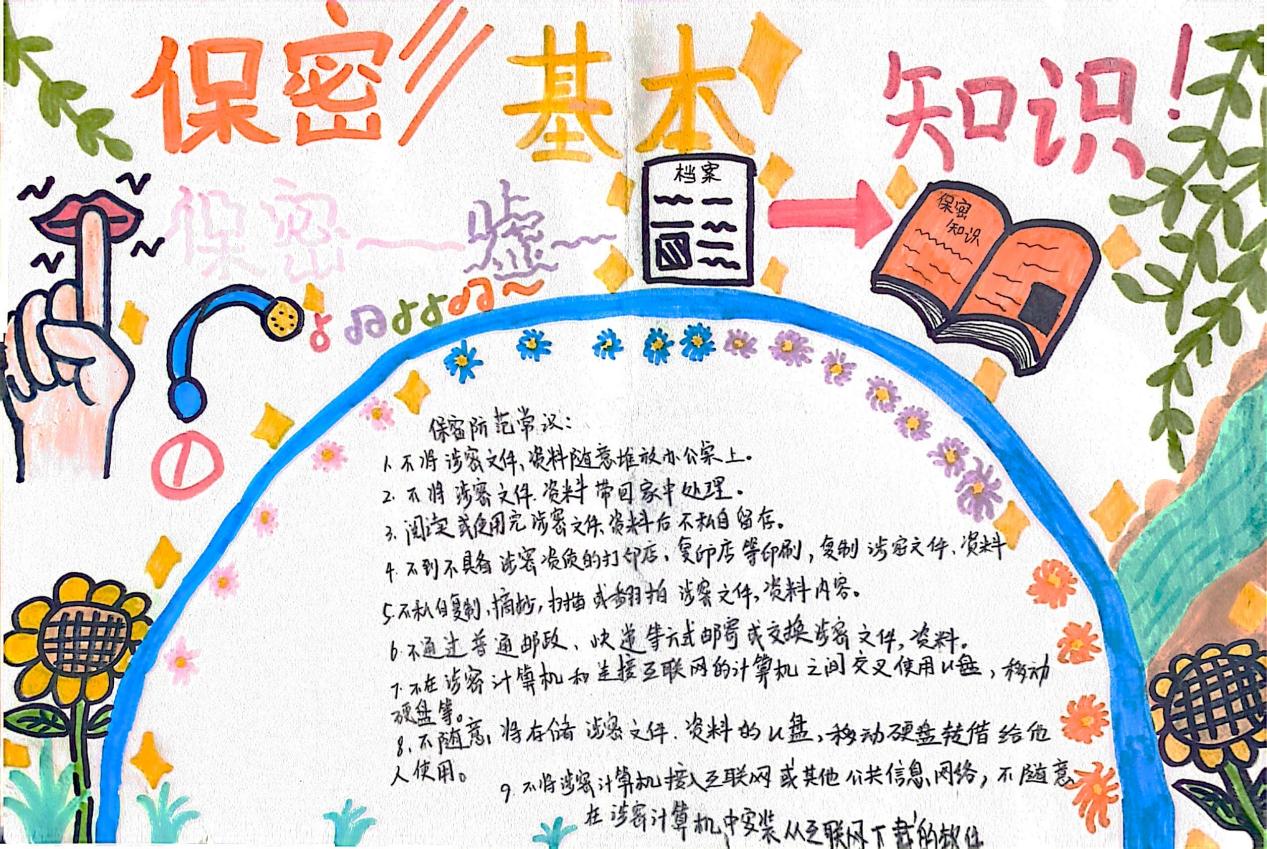 保密基本知识!
保密一嘘
档案
保密
知识
保密防范常议:
1. 不将涉密文件、资料随意堆放办公桌上。
2. 不将涉密文件、资料带回家中处理。
3. 阅定或使用完涉密文件、资料后不私自留存。
4. 不到不具备涉密资质的打印店、复印店等印刷,复制涉密文件、资料
5. 不私自复制,摘抄,扫描或翻拍涉密文件,资料内容。
6. 不通过普通邮政、快递等方式邮寄或交换涉密文件,资料。
7. 不在涉密计算机和连接互联网的计算机之间交叉使用U盘,移动
硬盘等。
8. 不随意将存储涉密文件、资料的U盘,移动硬盘转借给他
人使用。
9. 不将涉密计算机接入互联网或其他公共信息网络,不随意
在涉密计算机中安装从互联网下载的软件